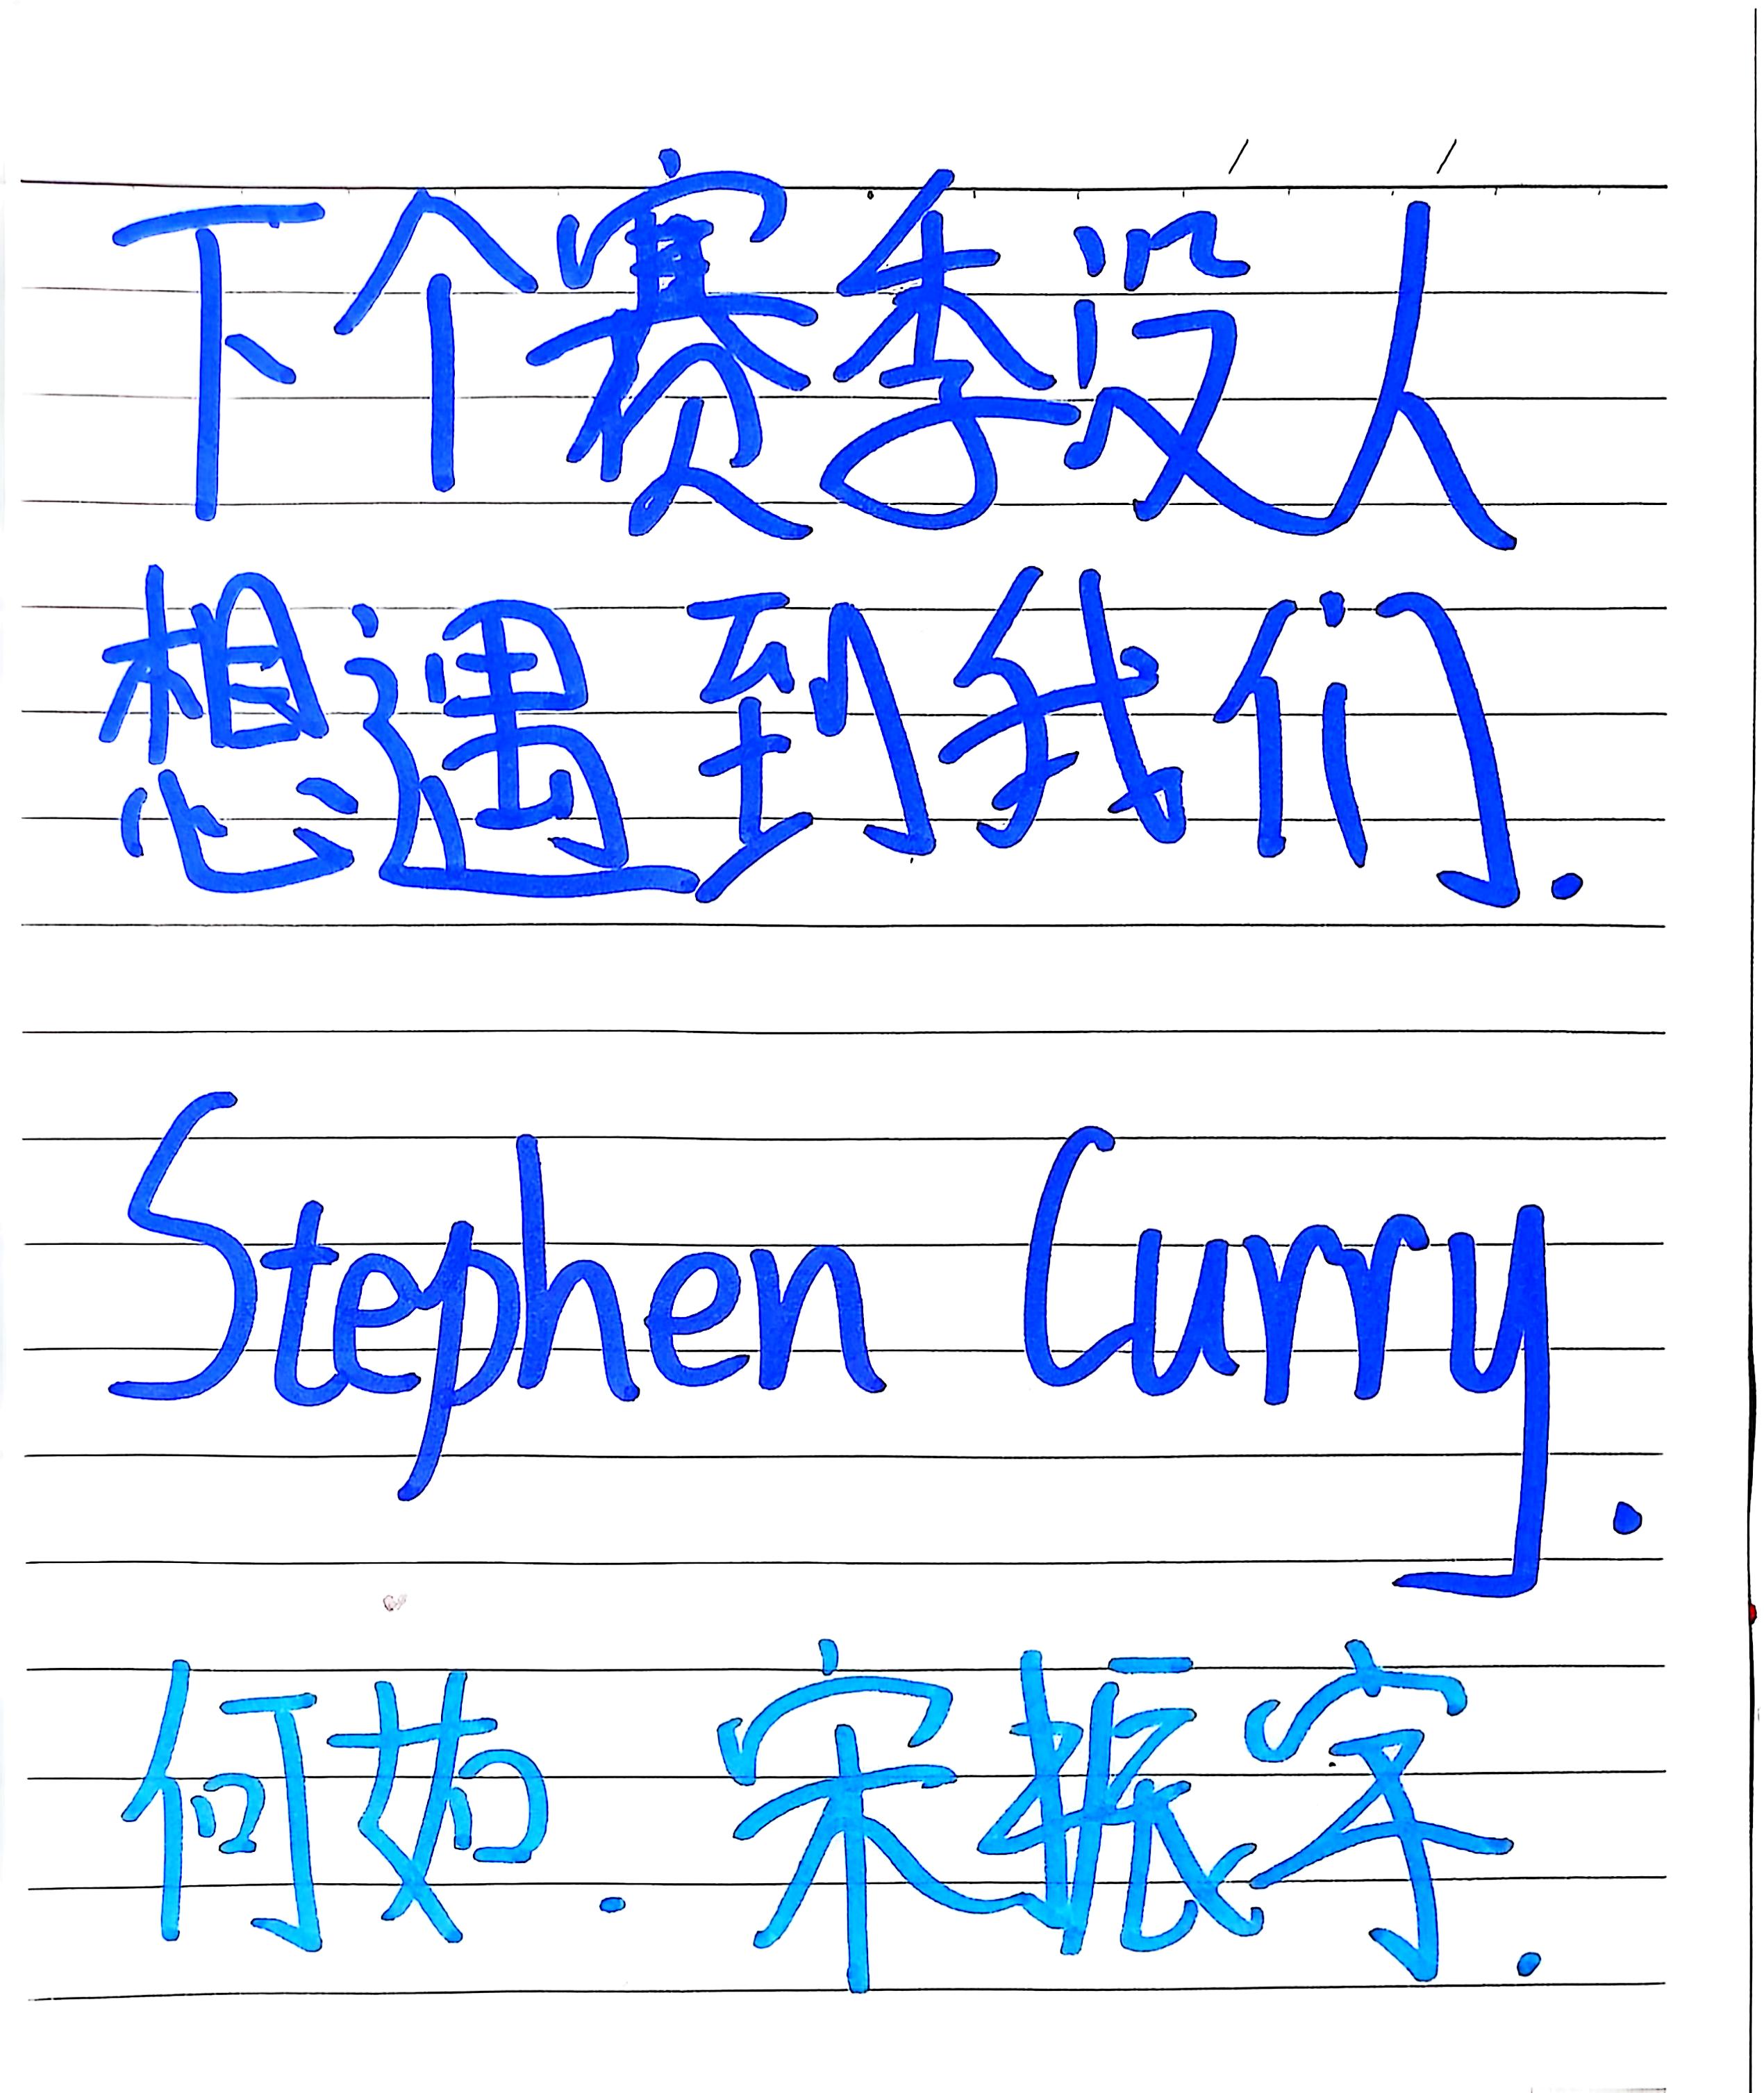 下个赛季没人
想遇到我们.
Stephen Curry.
何茹. 宋振宇.